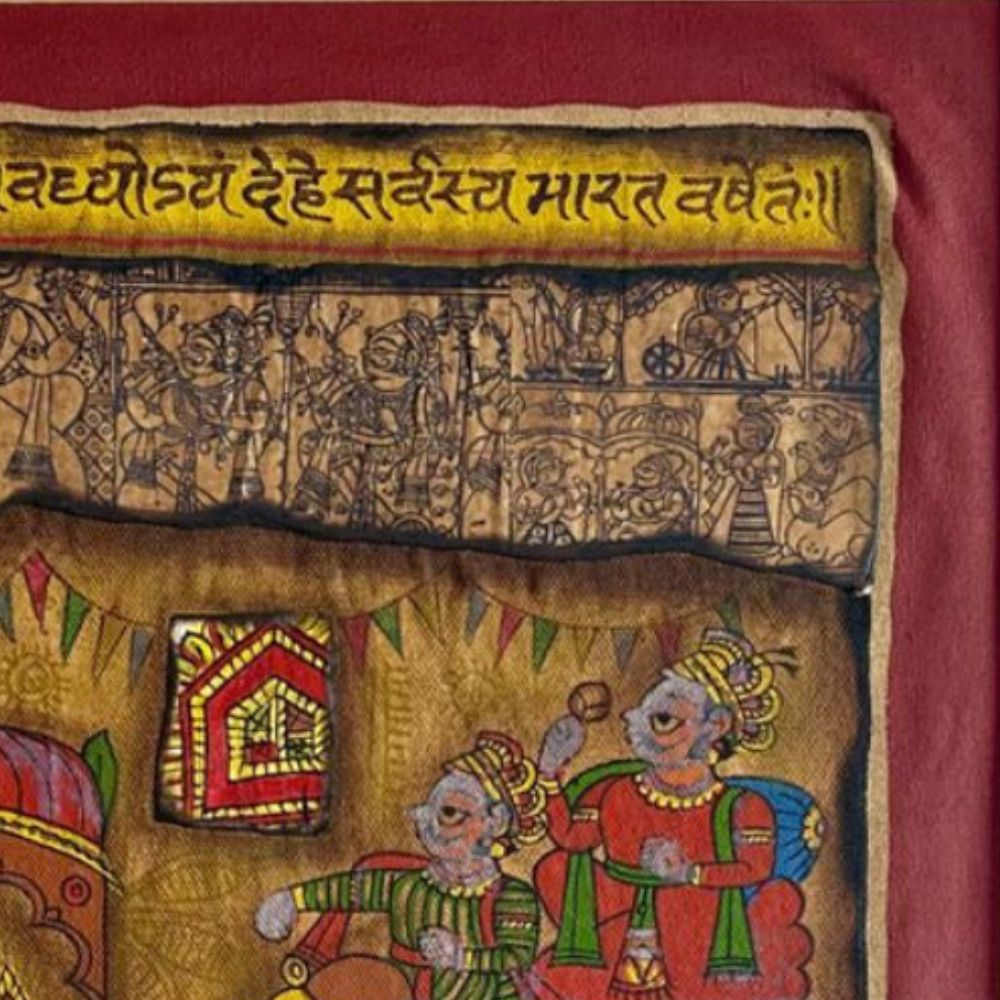 वध्योऽयं देहे सर्वस्य भारत वर्षेतः॥